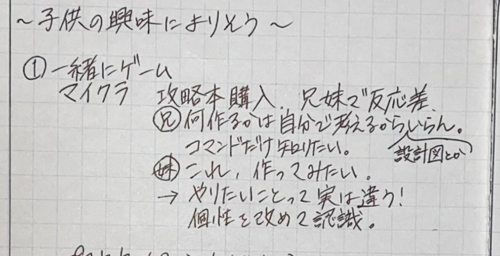 〜子供の興味によりそう〜
①一緒にゲーム
マイクラ 攻略本購入、兄妹で反応差、
兄 何作るかは自分で考えるからいらん。
設計図とか
コマンドだけ知りたい。
妹 これ、作ってみたい。
→ やりたいことって実は違う!
個性を改めて認識。